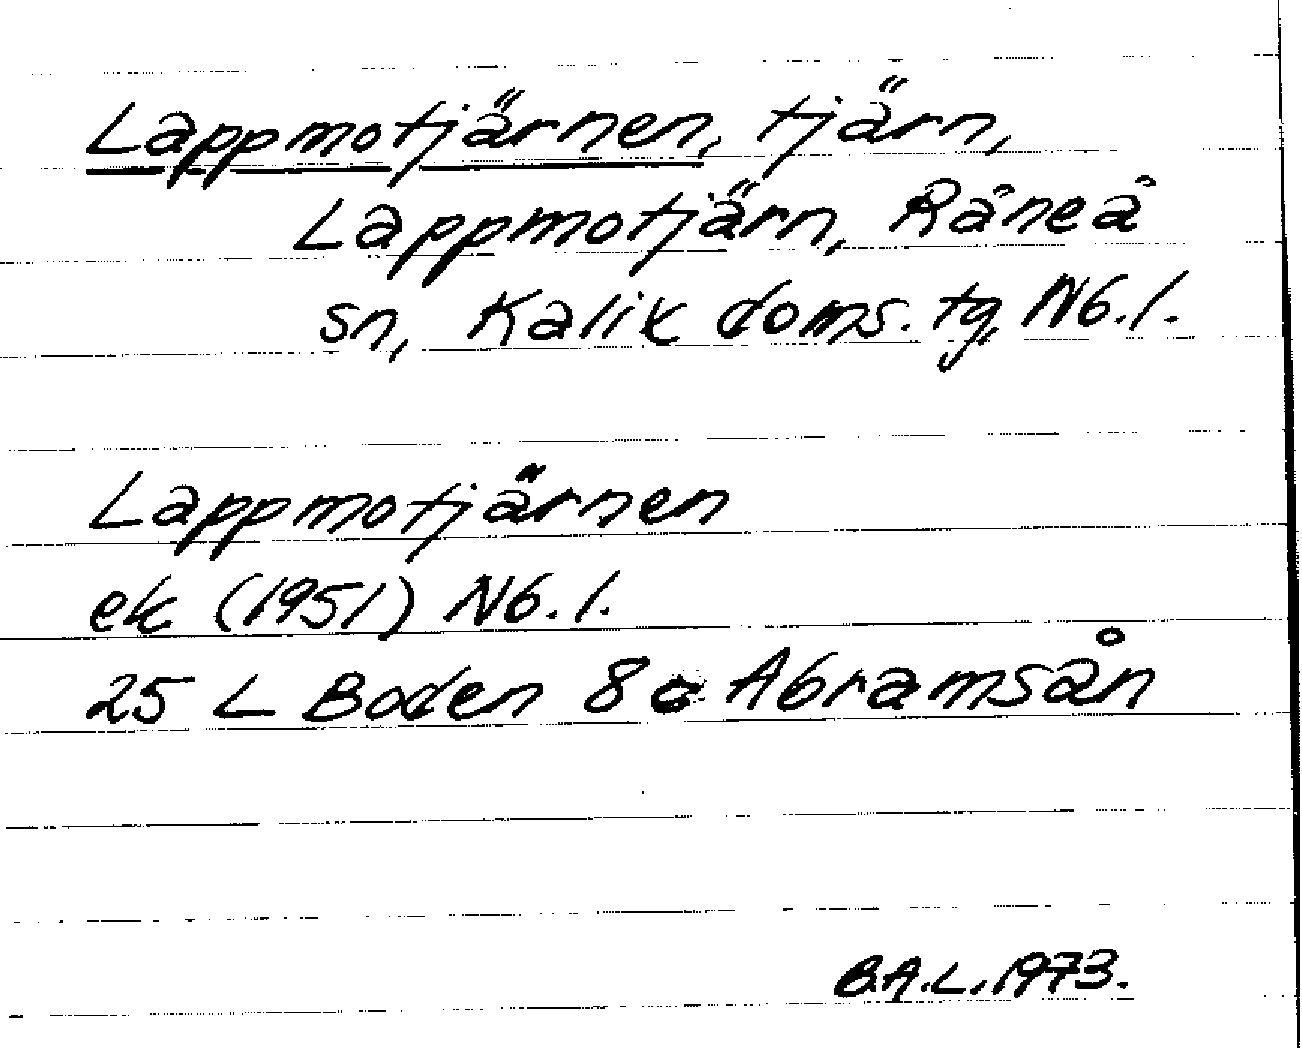 Lappmotjärnen, tjärn,
Lappmotjärn, Råneå
sn, Kalix doms. tg, Nb. l.
Lappmotjärnen
ek (1951) Nb. l.
25 L Boden 8c Abramsån
B.A.L. 1973.